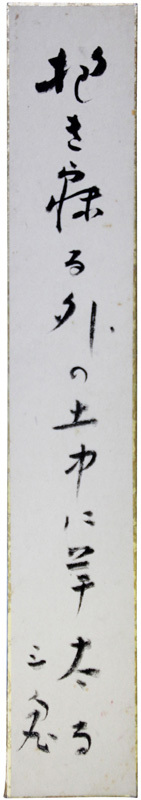 抱き寝る外の土中に芋太る
三鬼